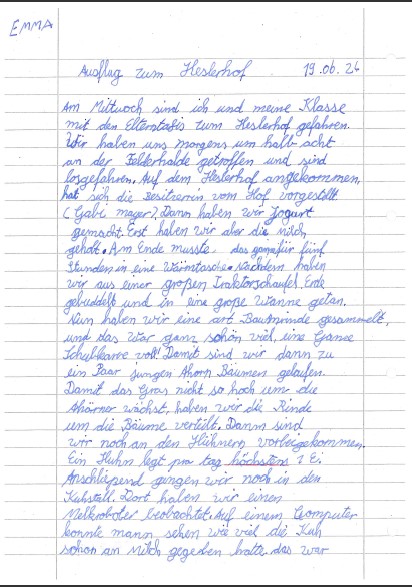 EMMA
Ausflug zum Heslerhof 19.06.24
Am Mittwoch sind ich und meine Klasse
mit den Elterntaxis zum Heslerhof gefahren.
Wir haben uns morgens um halb acht
an der Felderhalde getroffen und sind
losgefahren. Auf dem Heslerhof angekommen,
hat sich die Besitzerin vom Hof vorgestellt.
(Gabi mayer) Dann haben wir Jogurt
gemacht. Erst haben wir aber die milch
geholt. Am Ende musste das fünf
Stunden in eine Wärmtasche. Nachdem haben
wir aus einer großen Traktorschaufel Erde
gebuddelt und in eine große Wanne getan.
Nun haben wir eine art Baumrinde gesammelt,
und das war ganz schön viel, eine Ganze
Schubkarre voll! Damit sind wir dann zu
ein Paar jungen Ahorn Bäumen gelaufen.
Damit das Gras nicht so hoch um die
Ahörner wächst, haben wir die Rinde
um die Bäume verteilt. Dann sind
wir noch an den Hühnern vorbeigekommen.
Ein Huhn legt pro tag höchstens 1 Ei
Anschließend gingen wir noch in den
Kuhstall. Dort haben wir einen
Melkroboter beobachtet. Auf einem Computer
konnte mann sehen wie viel die Kuh
schon an Milch gegeben hatte. das war